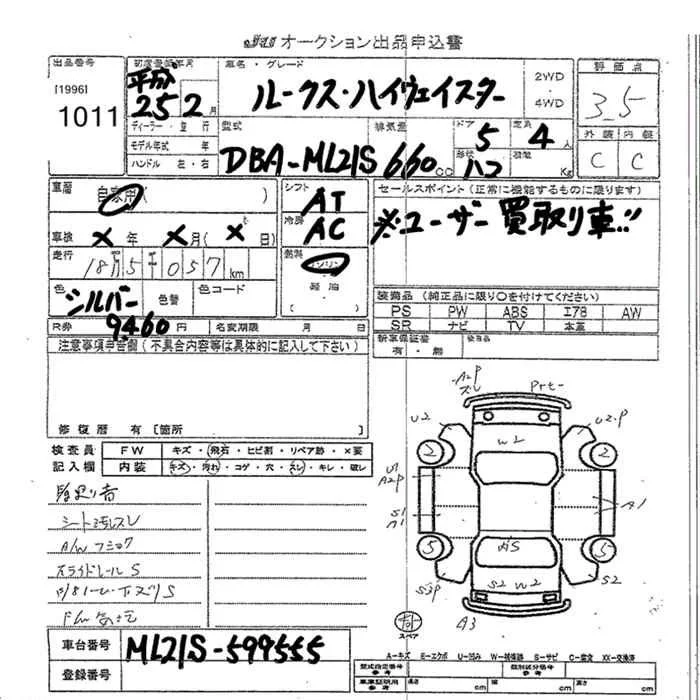 JU オークション出品申込書
出品番号
[1996]
1011
初度登録年月
平成
25 2月
車名・グレード
ルークス・ハイウェイスター
2WD
・
4WD
評価点
3.5
外装 内装
C C
ディーラー・並行
モデル年式 年
ハンドル 左・右
型式
DBA-ML21S
排気量
660cc
ドア
5
形状
ハコ
定員
4人
積載
Kg
車歴
自家用( )
車検 × 年 × 月( × 日)
走行
18万5千057km
色
シルバー
色替
色コード
シフト
AT
冷房
AC
燃料
ガソリン
・
軽油
セールスポイント(正常に機能するものに限ります)
※ユーザー買取り車!!
装備品(純正品に限り○を付けてください)
PS PW ABS エアB AW
SR ナビ TV 本革
新車保証書
有・無
後日品
R券 9460円 名変期限 月 日
注意事項申告欄(不具合内容等は具体的に記入して下さい)
修復歴 有[箇所
検査員
記入欄
FW キズ・飛石・ヒビ割・リペア跡・×要
内装 キズ・汚れ・コゲ・穴・スレ・キレ・破レ
シート汚レスレ
スライドレール S
A2P
ズレ
U2
W2
U2.P
2
2
U1
A2P
S1
A1
A1
5
5
S3P
S2 W2
S2
A3
スペア
A-キズ E-エクボ U-凹み W-補修跡 S-サビ C-腐食 XX-交換済
車台番号 ML21S-599555
登録番号
型式指定番号
参考
類別区分番号
参考
車庫証明用
参考
長さ cm 幅 cm 高さ cm